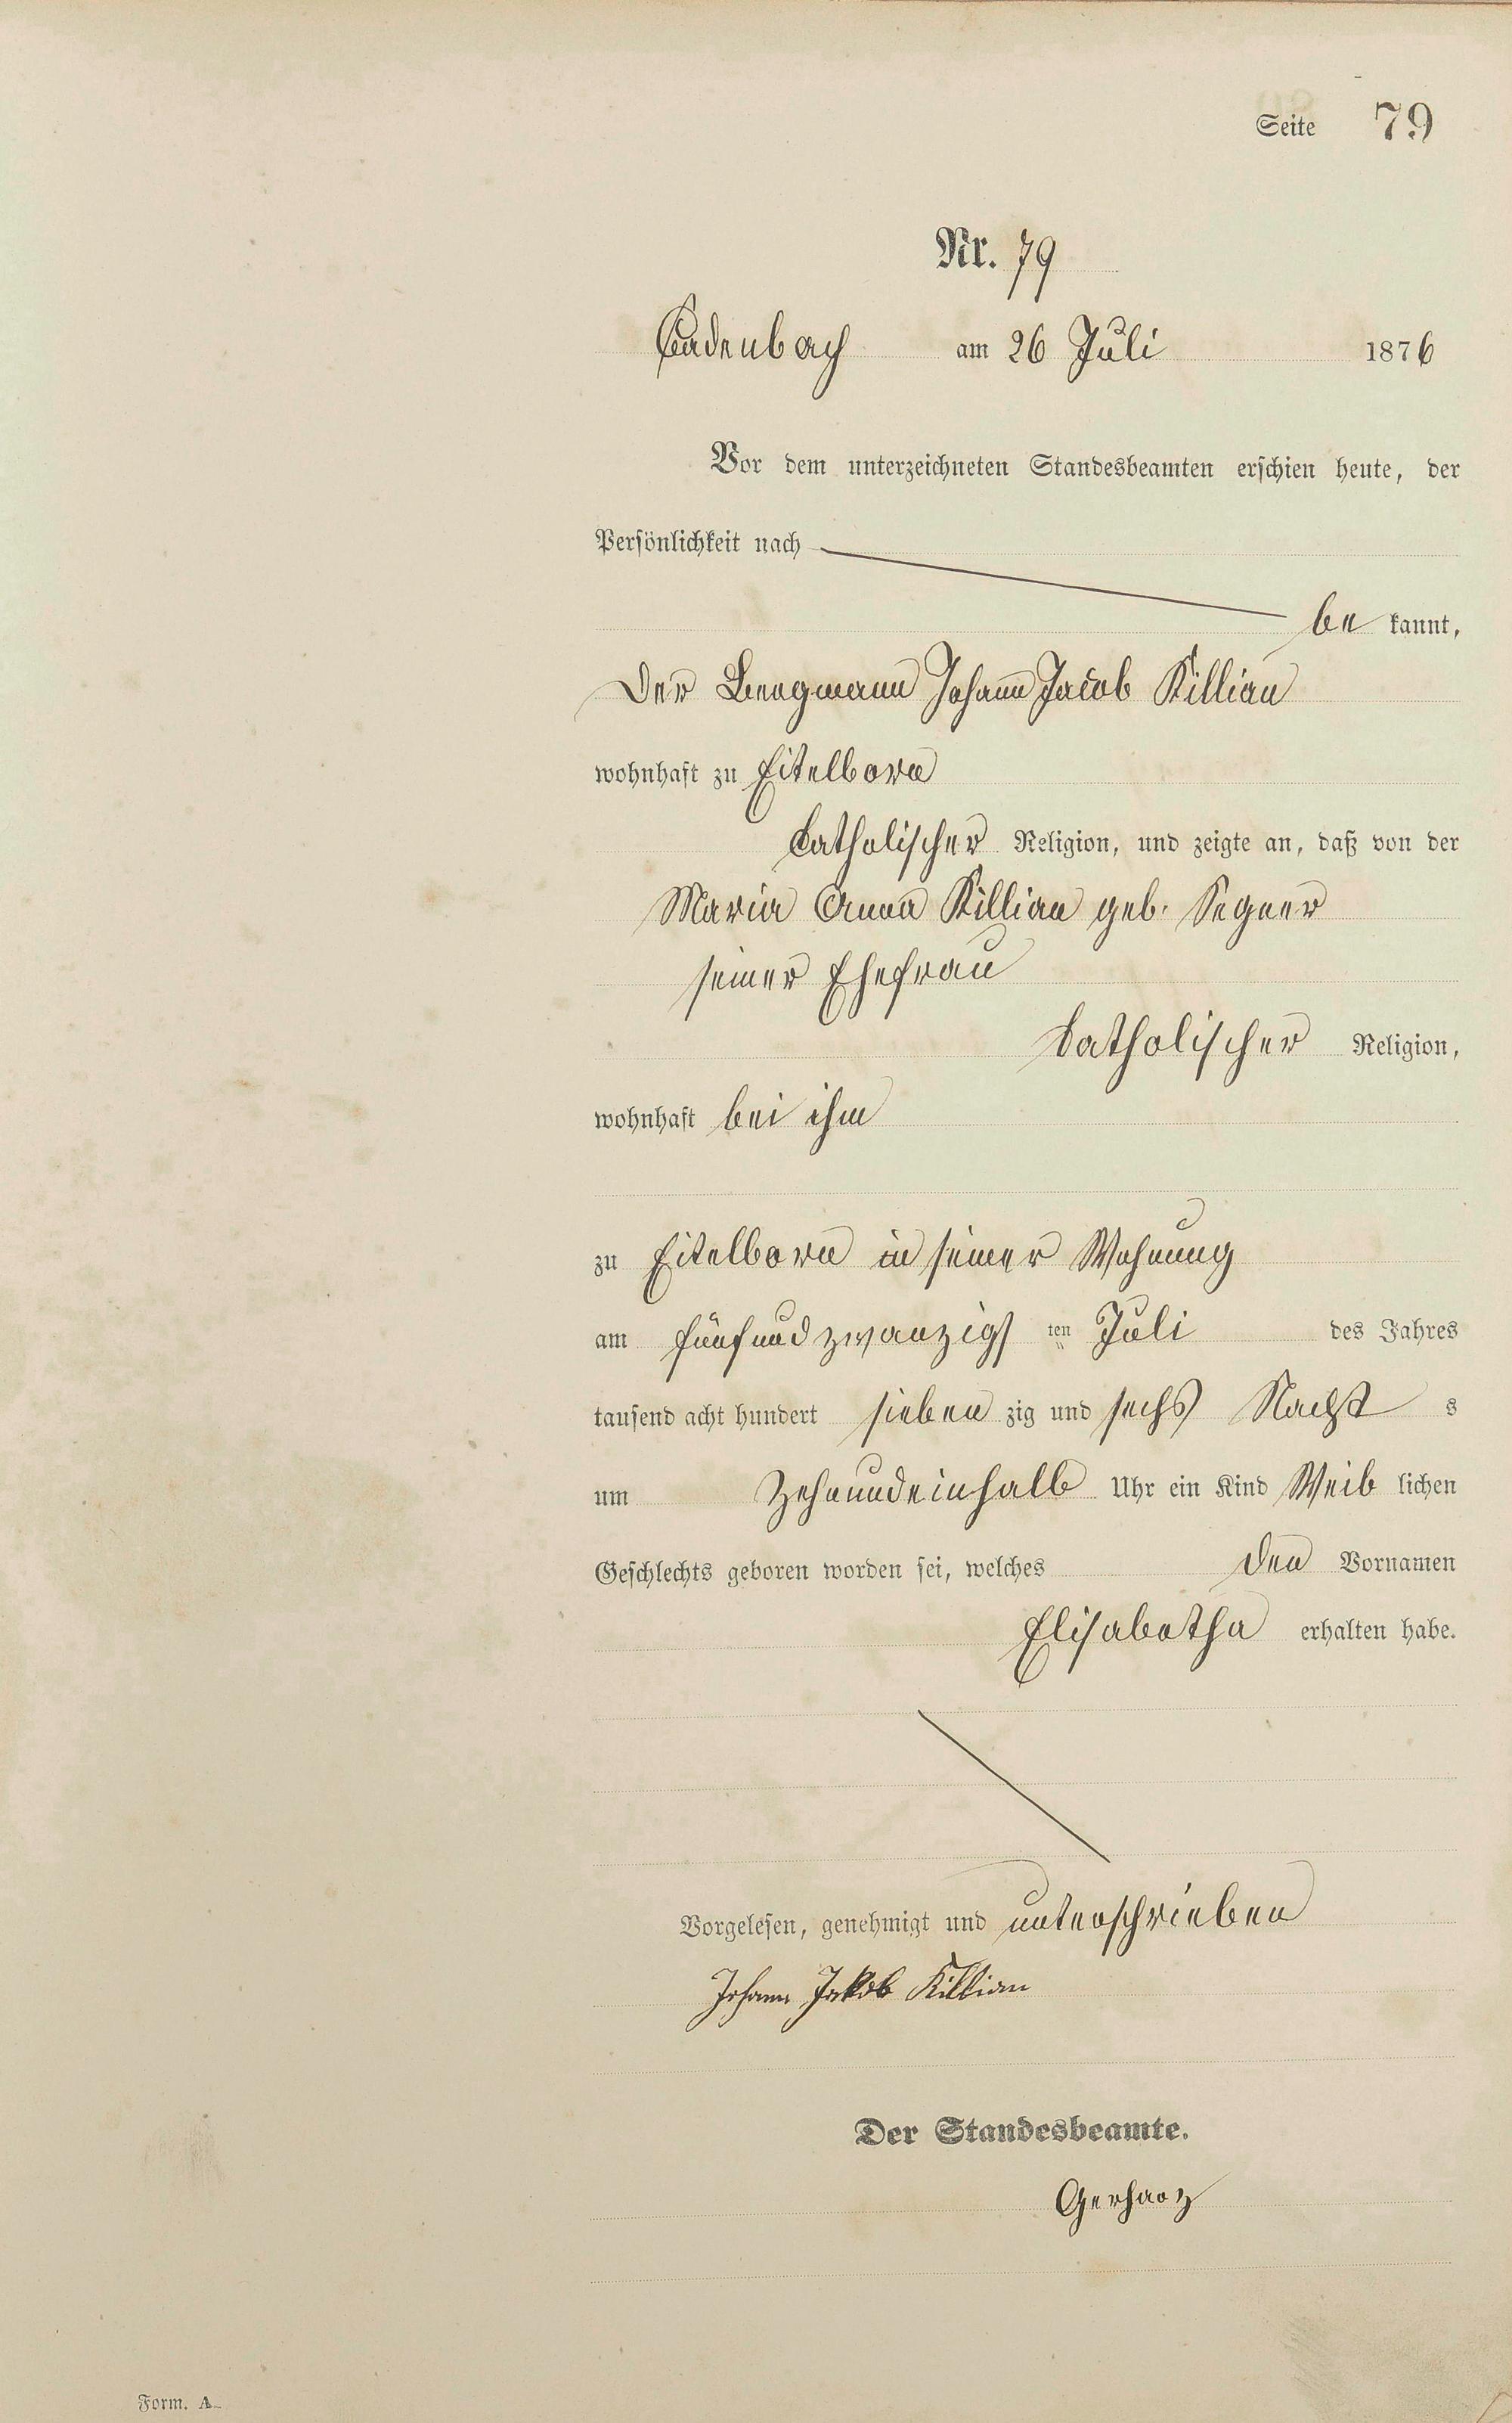 Seite 79
Nr. 79
Cadenbach am 26 Juli 1876
Vor dem unterzeichneten Standesbeamten erschien heute, der
Persönlichkeit nach
be kannt,
der Bergmann Johann Jacob Killian
wohnhaft zu Eitelborn
katholischer Religion, und zeigte an, daß von der
Maria Anna Killian geb. Segner
seiner Ehefrau
katholischer Religion,
wohnhaft bei ihm
zu Eitelborn in seiner Wohnung
am fünfundzwanzigs ten Juli des Jahres
tausend acht hundert sieben zig und sechs Nacht s
um Zehnundeinhalb Uhr ein Kind Weib lichen
Geschlechts geboren worden sei, welches den Vornamen
Elisabetha erhalten habe.
Vorgelesen, genehmigt und unterschrieben
Johann Jakob Killian
Der Standesbeamte.
Gerharz
Form. A